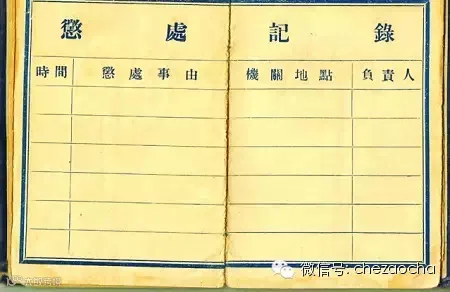 懲處記錄
時間 懲處事由 機關地點 負責人
微信号: chezaocha